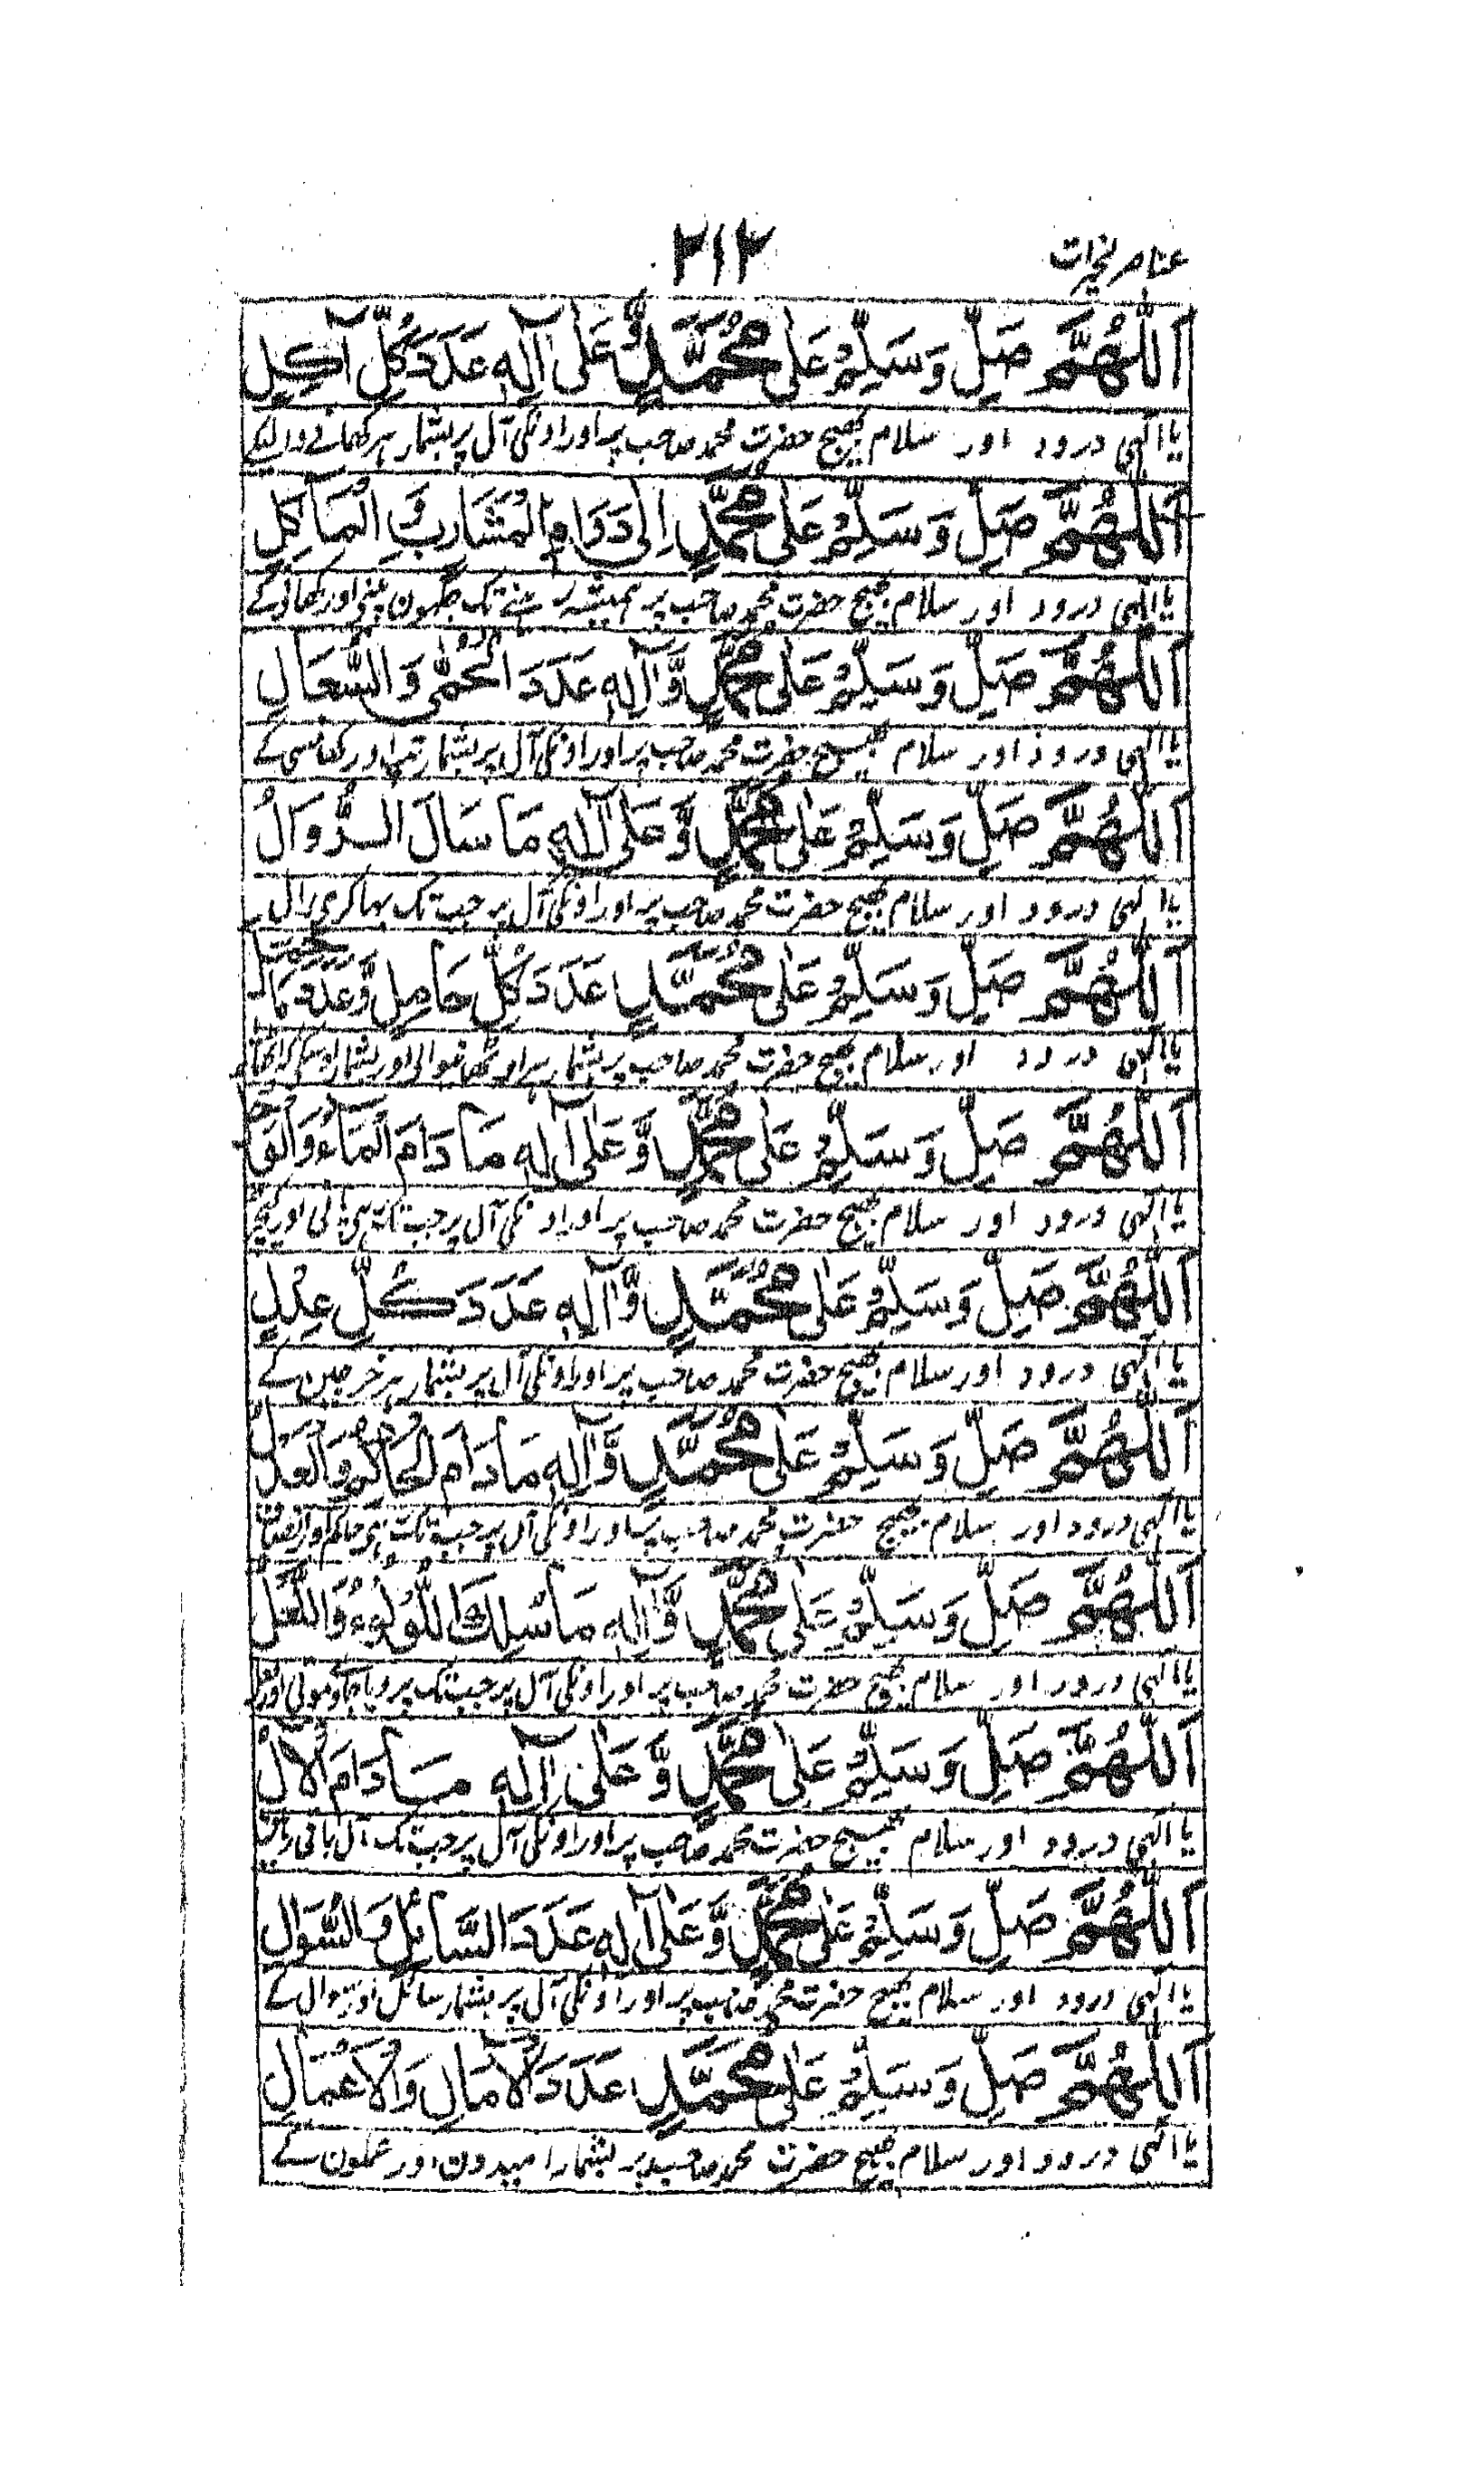 عناصر لخیرات
۲۱۲
اَللّٰهُمَّ صَلِّ وَسَلِّمْ عَلٰی مُحَمَّدٍ وَّعَلٰی اٰلِهٖ عَدَدَ كُلِّ آكِلٍ
یا الٰہی درود اور سلام بھیج حضرت محمد صاحب پر اور اونکی آل پر بشمار ہر کھانے والیکے
اَللّٰهُمَّ صَلِّ وَسَلِّمْ عَلٰی مُحَمَّدٍ اِلٰی دَوَامِ الْمَشَارِبِ وَ الْمَآكِلِ
یا الٰہی درود اور سلام بھیج حضرت محمد صاحب پر ہمیشہ رہنے تک جگہون پینی اور کھانیکے
اَللّٰهُمَّ صَلِّ وَسَلِّمْ عَلٰی مُحَمَّدٍ وَّاٰلِهٖ عَدَدَ الْحُمّٰی وَالسُّعَالِ
یا الٰہی درود اور سلام بھیج حضرت محمد صاحب پر اور اونکی آل پر بشمار تپ اور کھانسی کے
اَللّٰهُمَّ صَلِّ وَسَلِّمْ عَلٰی مُحَمَّدٍ وَّعَلٰی اٰلِهٖ مَا سَالَ الرُّوَالُ
یا الٰہی درود اور سلام بھیج حضرت محمد صاحب پر اور اونکی آل پر جب تک بہا کری رال
اَللّٰهُمَّ صَلِّ وَسَلِّمْ عَلٰی مُحَمَّدٍ عَدَدَ كُلِّ حَامِلٍ وَّعَدَدَ مَا
یا الٰہی درود اور سلام بھیج حضرت محمد صاحب پر بشمار ہر اوٹھانیوالی اور بشمار
اَللّٰهُمَّ صَلِّ وَسَلِّمْ عَلٰی مُحَمَّدٍ وَّعَلٰی اٰلِهٖ مَا دَامَ الْمَآءُ وَ
یا الٰہی درود اور سلام بھیج حضرت محمد صاحب پر اور اونکی آل پر جب تک رہی پانی اور کیچڑ
اَللّٰهُمَّ صَلِّ وَسَلِّمْ عَلٰی مُحَمَّدٍ وَّاٰلِهٖ عَدَدَ كُلِّ عِدْلٍ
یا الٰہی درود اور سلام بھیج حضرت محمد صاحب پر اور اونکی آل پر بشمار ہر خرجین کے
اَللّٰهُمَّ صَلِّ وَسَلِّمْ عَلٰی مُحَمَّدٍ وَّاٰلِهٖ مَا دَامَ الْحَاكِمُ وَالْعَدْلُ
یا الٰہی درود اور سلام بھیج حضرت محمد صاحب پر اور اونکی آل پر جب تک رہی حاکم اور انصاف
اَللّٰهُمَّ صَلِّ وَسَلِّمْ عَلٰی مُحَمَّدٍ وَّاٰلِهٖ مَا سُلِكَ اللُّؤْلُوءُ وَاللَّعْلُ
یا الٰہی درود اور سلام بھیج حضرت محمد صاحب پر اور اونکی آل پر جب تک پرویا جاوے موتی اور لعل
اَللّٰهُمَّ صَلِّ وَسَلِّمْ عَلٰی مُحَمَّدٍ وَّعَلٰی اٰلِهٖ مَا دَامَ الْاٰلُ
یا الٰہی درود اور سلام بھیج حضرت محمد صاحب پر اور اونکی آل پر جب تک آل باقی رہی
اَللّٰهُمَّ صَلِّ وَسَلِّمْ عَلٰی مُحَمَّدٍ وَّعَلٰی اٰلِهٖ عَدَدَ السَّآئِلِ وَالسُّوَالِ
یا الٰہی درود اور سلام بھیج حضرت محمد صاحب پر اور اونکی آل پر بشمار سائل اور سوال کے
اَللّٰهُمَّ صَلِّ وَسَلِّمْ عَلٰی مُحَمَّدٍ عَدَدَ الْاٰمَالِ وَالْاَعْمَالِ
یا الٰہی درود اور سلام بھیج حضرت محمد صاحب پر بشمار امیدون اور عملون کے